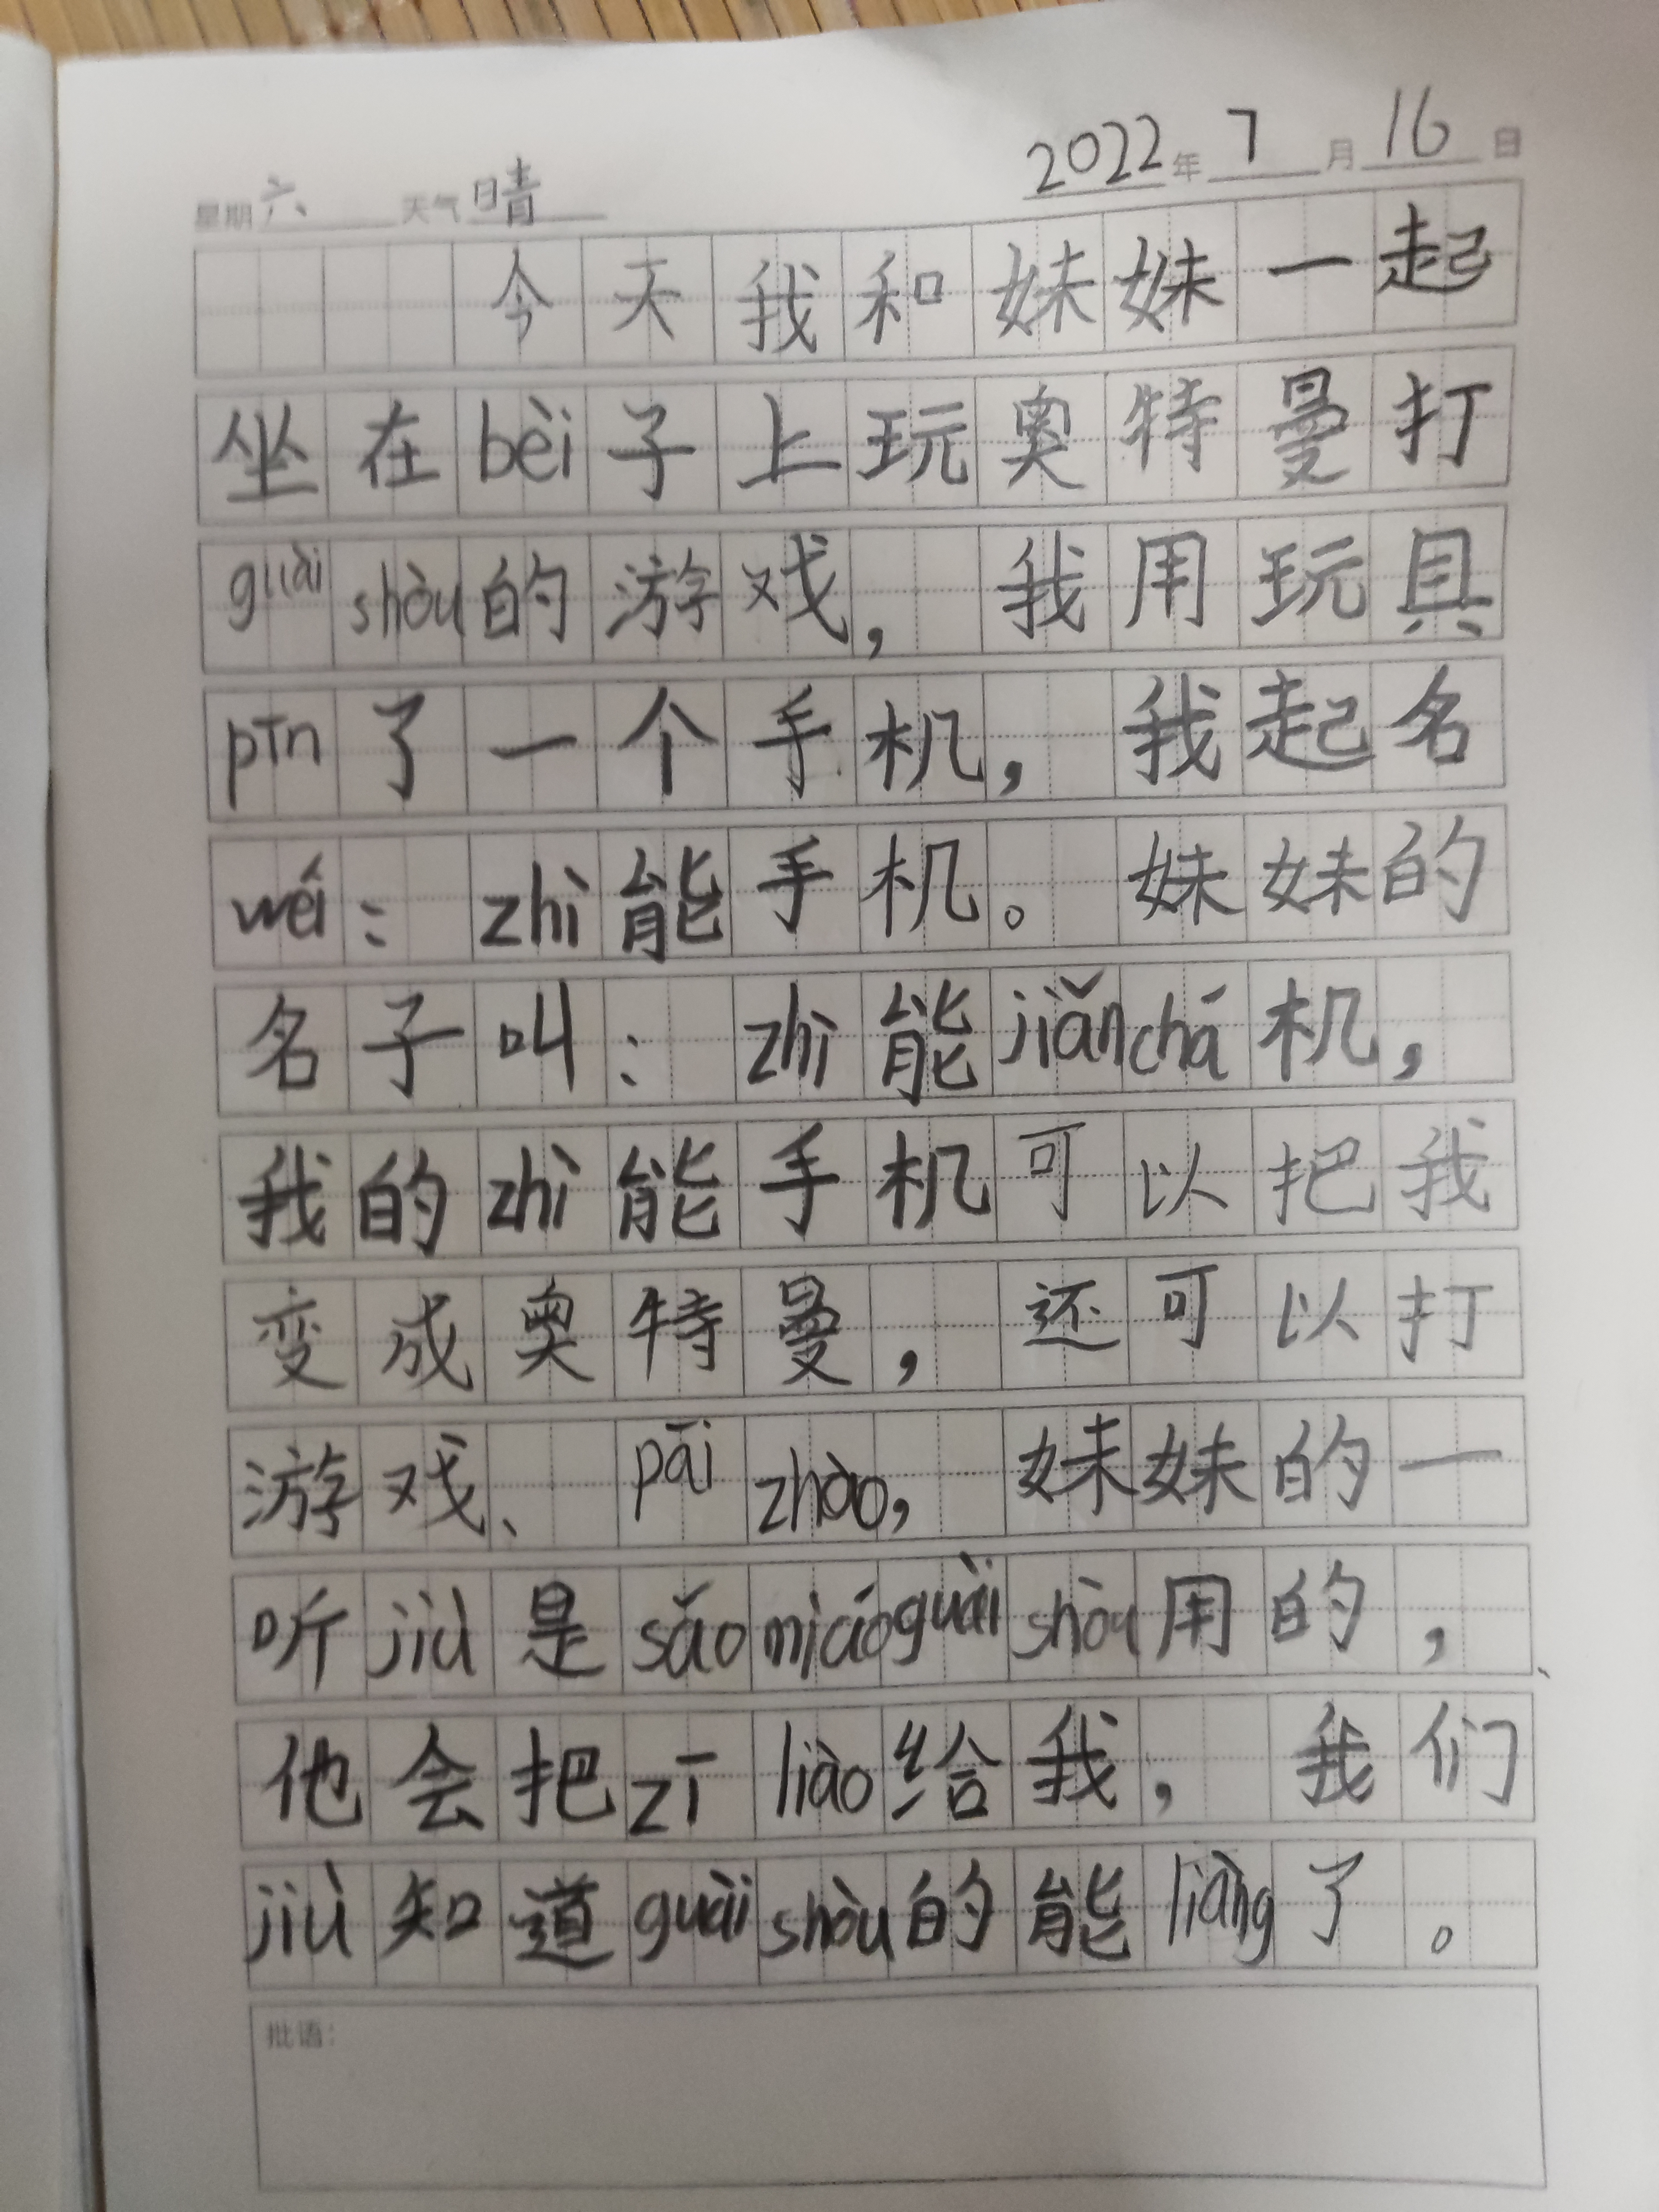 2022年7月16日
星期六 天气晴
今天我和妹妹一起
坐在bèi子上玩奥特曼打
guàishòu的游戏，我用玩具
pīn了一个手机，我起名
wéi：zhì能手机。妹妹的
名子叫：zhì能jiǎnchá机，
我的zhì能手机可以把我
变成奥特曼，还可以打
游戏、pāizhào，妹妹的一
听jiù是sǎomiáoguàishòu用的，
他会把zīliào给我，我们
jiù知道guàishòu的能liàng了。
批语：